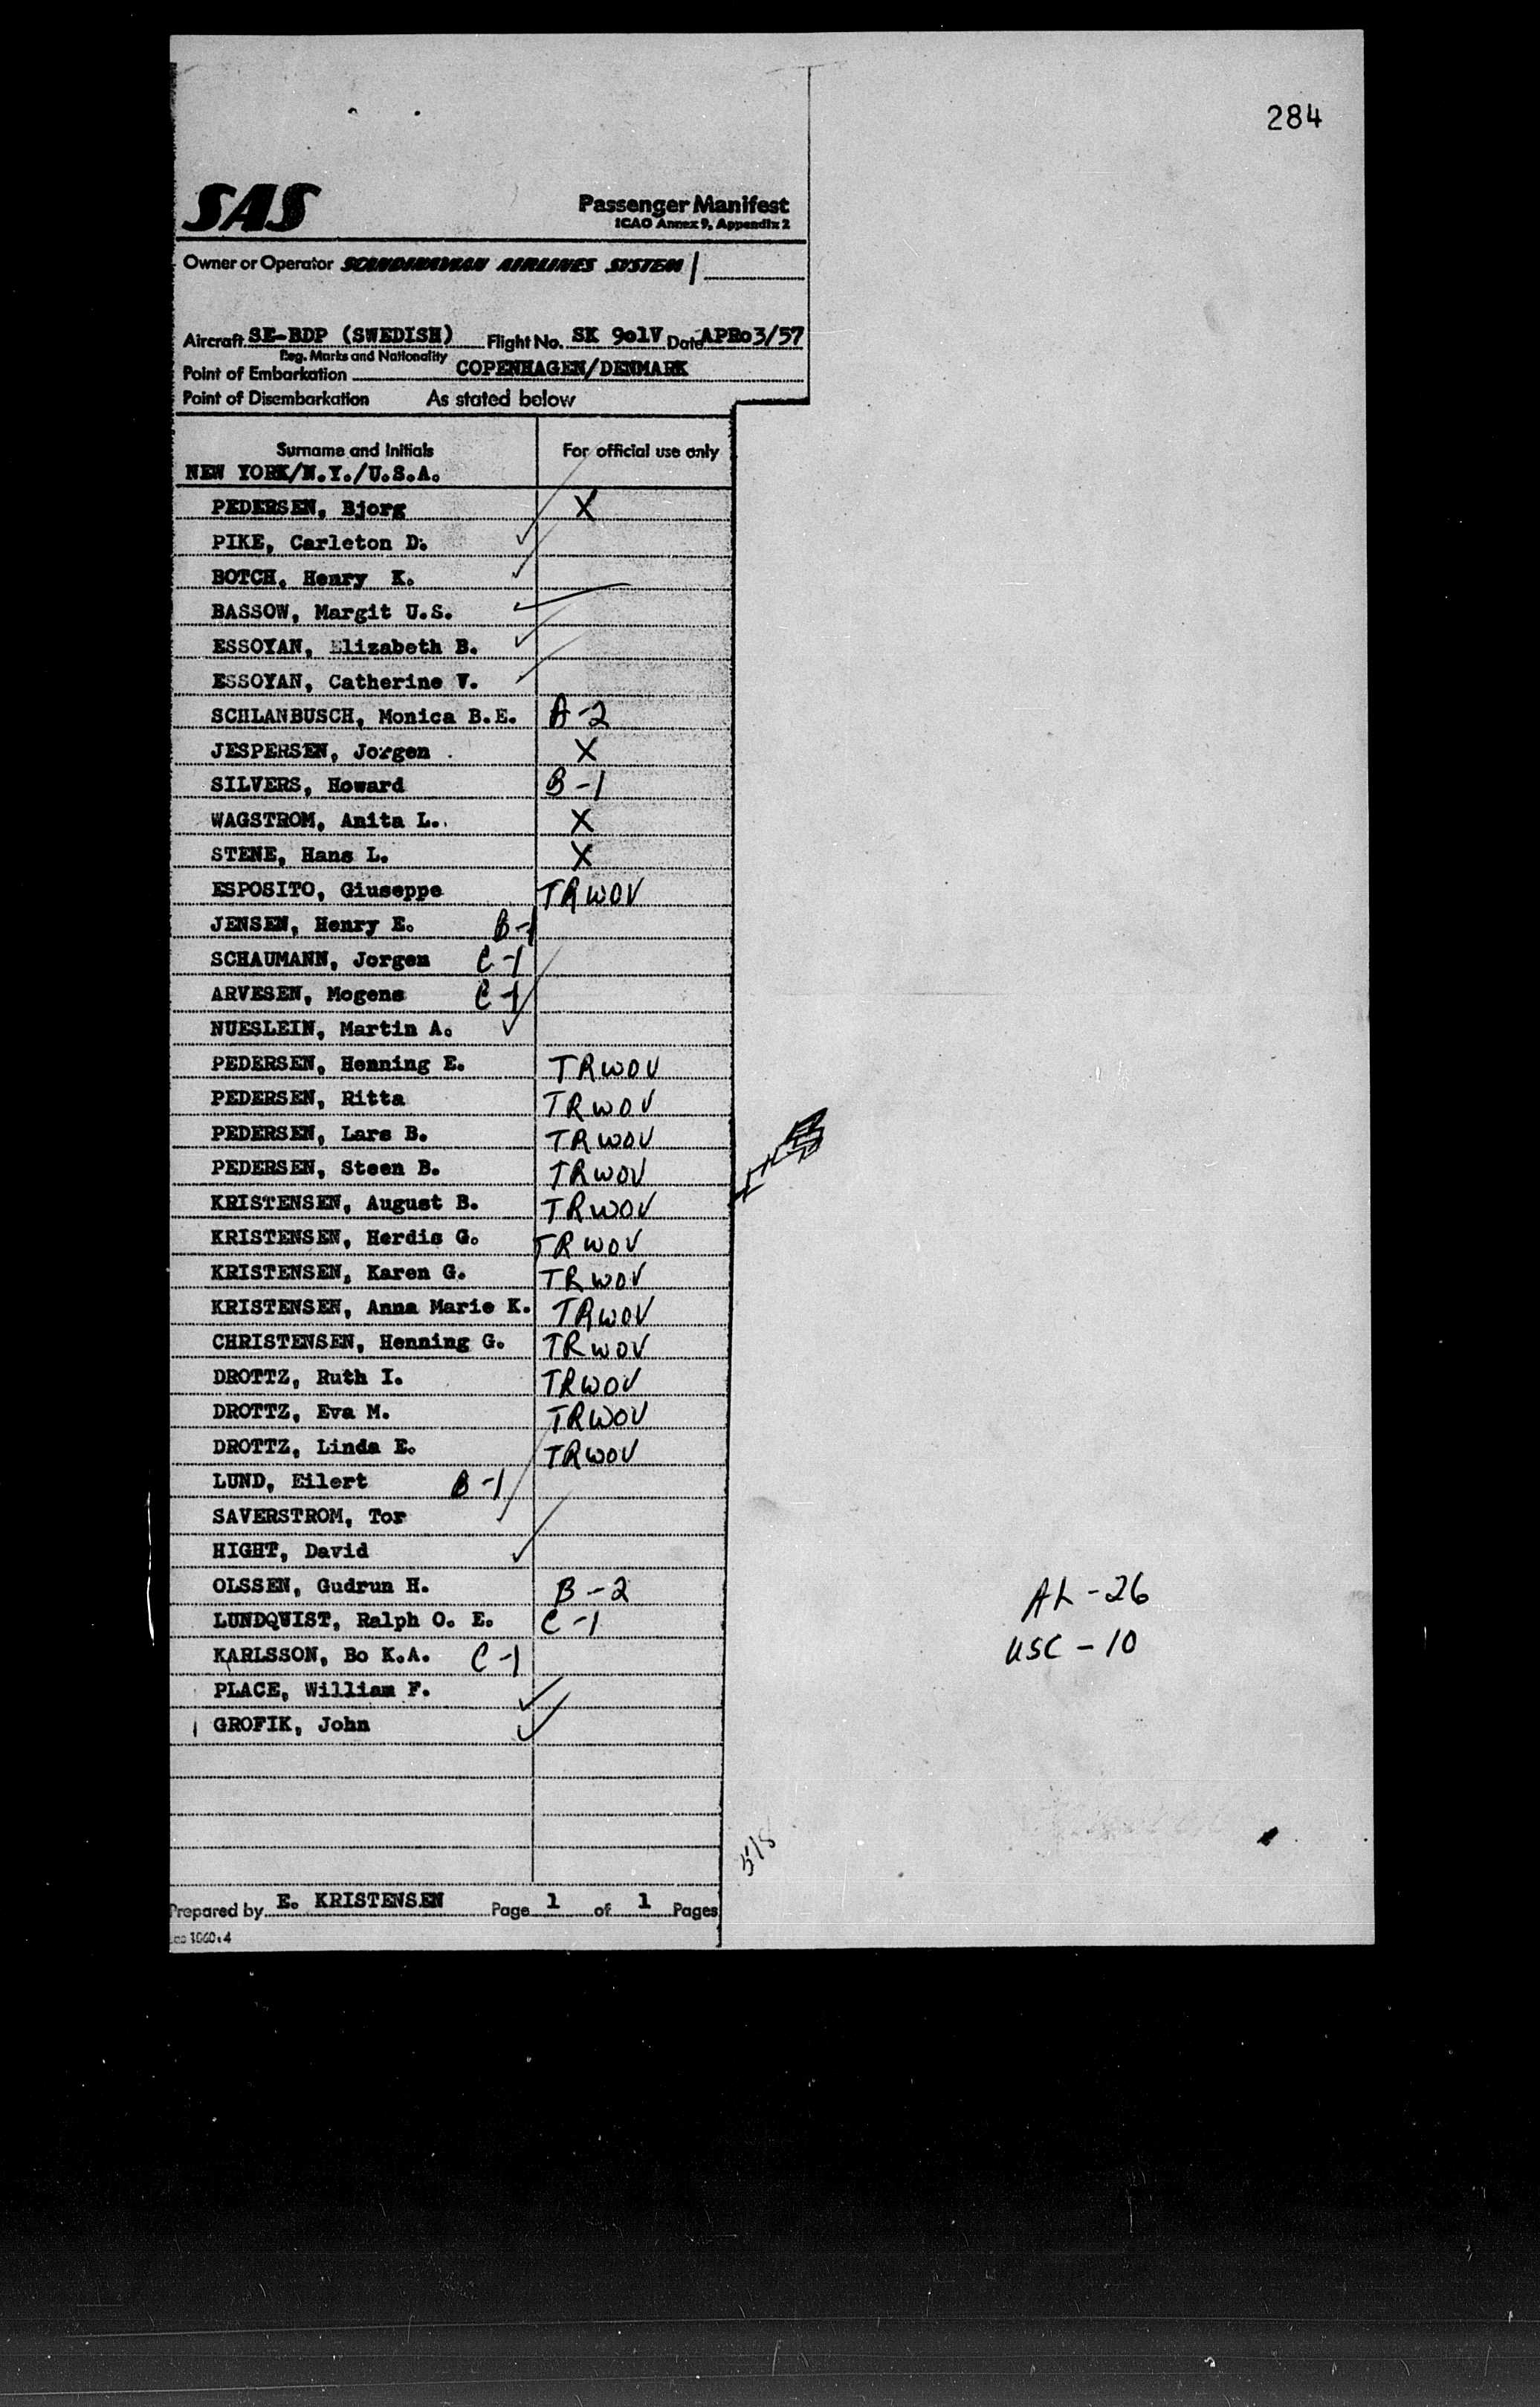 284
SAS
Passenger Manifest
ICAO Annex 9, Appendix 2
Owner or Operator SCANDINAVIAN AIRLINES SYSTEM
Aircraft SE-BDP (SWEDISH) Flight No. SK 901V Date APR03/57
Reg. Marks and Nationality
Point of Embarkation COPENHAGEN/DENMARK
Point of Disembarkation As stated below
Surname and Initials For official use only
NEW YORK/N.Y./U.S.A.
PEDERSEN, Bjorg X
PIKE, Carleton D. ✓
BOTCH, Henry K. ✓
BASSOW, Margit U.S. ✓
ESSOYAN, Elizabeth B. ✓
ESSOYAN, Catherine V. ✓
SCHLANBUSCH, Monica B.E. A-2
JESPERSEN, Jorgen X
SILVERS, Howard B-1
WAGSTROM, Anita L. X
STENE, Hans L. X
ESPOSITO, Giuseppe TRWOV
JENSEN, Henry E. B-1
SCHAUMANN, Jorgen C-1
ARVESEN, Mogens C-1
NUESLEIN, Martin A. ✓
PEDERSEN, Henning E. TRWOV
PEDERSEN, Ritta TRWOV
PEDERSEN, Lars B. TRWOV
PEDERSEN, Steen B. TRWOV
KRISTENSEN, August B. TRWOV
KRISTENSEN, Herdis G. TRWOV
KRISTENSEN, Karen G. TRWOV
KRISTENSEN, Anna Marie K. TRWOV
CHRISTENSEN, Henning G. TRWOV
DROTTZ, Ruth I. TRWOV
DROTTZ, Eva M. TRWOV
DROTTZ, Linda E. TRWOV
LUND, Eilert B-1
SAVERSTROM, Tor ✓
HIGHT, David ✓
OLSSEN, Gudrun H. B-2
LUNDQVIST, Ralph O. E. C-1
KARLSSON, Bo K.A. C-1
PLACE, William F. ✓
GROFIK, John ✓
AL-26
USC-10
518
Prepared by E. KRISTENSEN Page 1 of 1 Pages